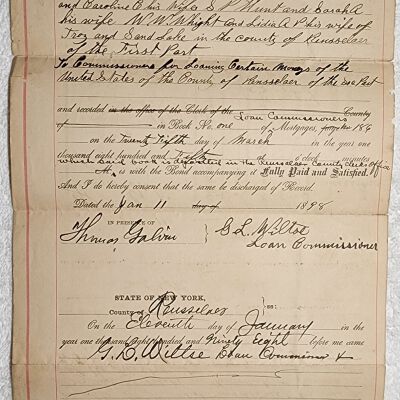 and Caroline E his wife S P Hunt and Sarah A
his wife W. W. Whyght and Lidia A P his wife of
Troy and Sand Lake in the County of Rensselaer
of the First Part
To Commissioners for Loaning Certain Moneys of the
United States of the County of Rensselaer of the Part
and recorded in the office of the Clerk of the County
Loan Commissioners
of in Book No. one of Mortgages, page No 186
on the Twenty Fifth day of March in the year one
thousand eight hundred and Fifty at o'clock minutes
which said book is deposited in the Rensselaer County Clerks Office
is with the Bond accompanying it Fully Paid and Satisfied.
And I do hereby consent that the same be discharged of Record.
Dated the Jan 11 day of 1898
IN PRESENCE OF
Thomas Galvin
G. L. Wiltse
Loan Commissioner
STATE OF NEW YORK,
County of Rensselaer ss:
On the Eleventh day of January in the
year one thousand eight hundred and Ninety Eight before me came
G. L. Wiltse Loan Commissioner